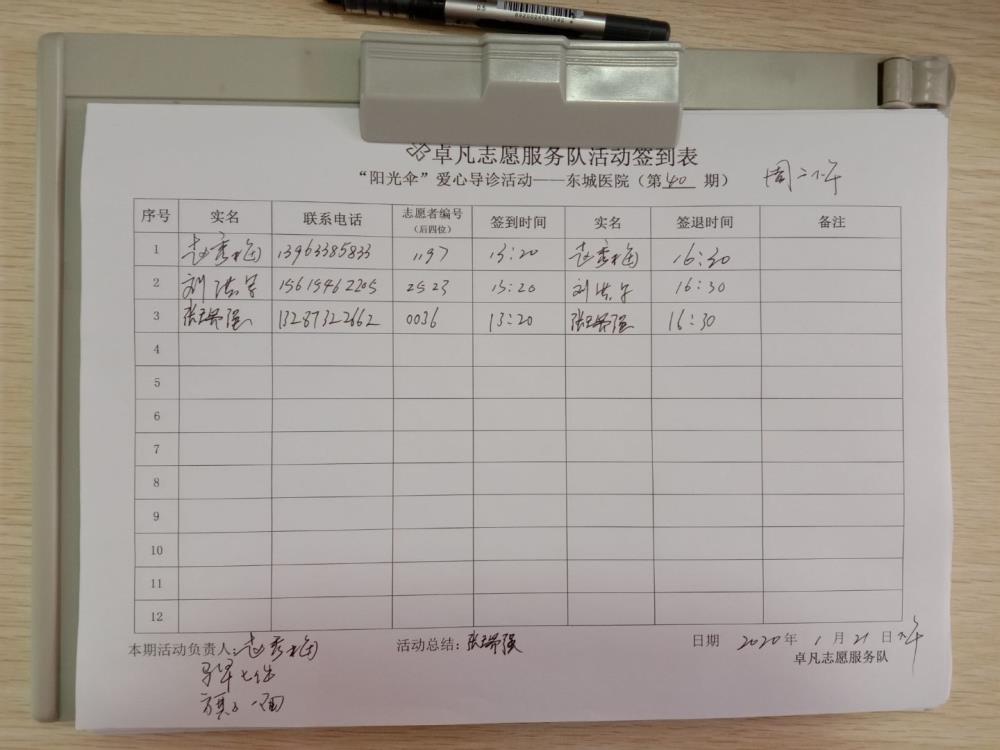 0.5
6920024031240
卓凡志愿服务队活动签到表
“阳光伞”爱心导诊活动——东城医院（第40期） 周二下午
序号 实名 联系电话 志愿者编号（后四位） 签到时间 实名 签退时间 备注
1 赵秀梅 13963385833 1197 13:20 赵秀梅 16:30
2 刘洪 15615462205 2523 13:20 刘洪 16:30
3 张瑞强 13287322662 0036 13:20 张瑞强 16:30
4
5
6
7
8
9
10
11
12
本期活动负责人：赵秀梅 活动总结：张瑞强 日期 2020年1月21日下午
马甲七件
旗子一面
卓凡志愿服务队